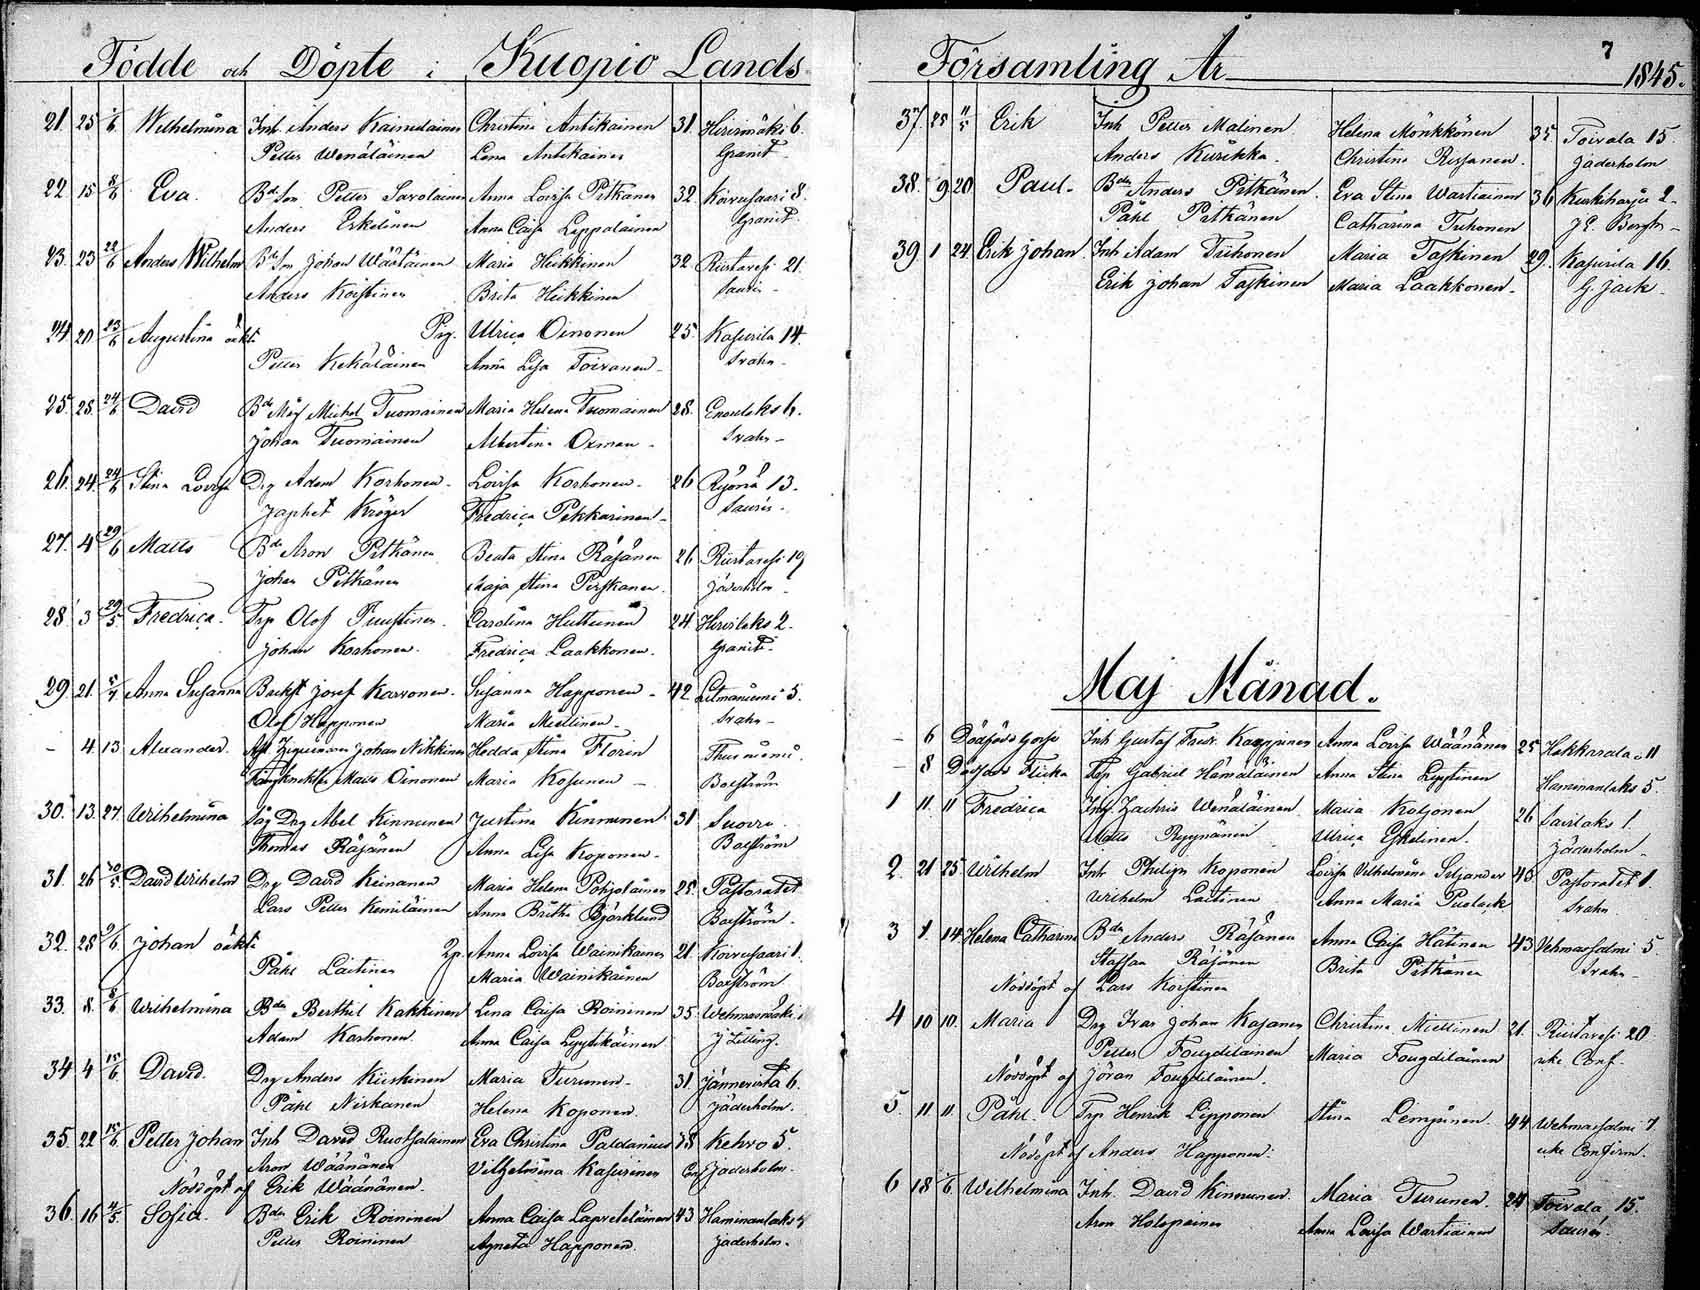 Födde och Döpte i Kuopio Lands
21. 25 1/6 Wilhelmina Inh. Anders Kainulainen Christina Antikainen 31. Hirvimäki 6.
Petter Wenäläinen Lena Antikainen Granit
22. 15 8/6 Eva. Bd. Son Petter Savolainen Anna Lovisa Pitkänen 32. Koivusaari 8.
Anders Eskelinen Anna Caisa Lippolainen Granit.
23. 23 22/6 Anders Wilhelm Bd. Son Johan Wäätäinen Maria Heikkinen 32. Riistavesi 21.
Anders Koistinen Brita Heikkinen Saurén
24 20 23/6 Augustina oäkt. Pig. Ulrica Oinonen 25. Kasurila 14.
Petter Kekäläinen Anna Lisa Toivanen Svahn
25. 28. 24/6 David Bd. Måg Michel Tuomainen Maria Helena Tuomainen 28. Enonlaks 4.
Johan Tuomainen Albertina Oxman Svahn
26. 24. 24/6 Stina Lovisa Drg Adam Korhonen Lovisa Korhonen 26 Ryönä 13.
Japhet Kröger Fredrica Pekkarinen Saurén.
27. 4 29/6 Matts Bde Aron Pitkänen Beata Stina Räsänen 26 Riistavesi 19
Johan Pitkänen Maja Stina Perskanen Jäderholm
28. 3 29/5 Fredrica. Trp Olof Puustinen Carolina Huttunen 24 Hirvilaks 2.
Johan Korhonen Fredrica Laakkonen. Granit.
29. 21. 5/7 Anna Susanna Josef Karvonen. Susanna Happonen 42. Litmaniemi 5.
Olof Happonen Maria Miettinen Svahn
- 4. 13 Alexander. Johan Nikkinen Hedda Stina Florin
Matts Oinonen Maria Kosunen Boeström
30. 13. 27 Wilhelmina Såg Drg Abel Kinnunen Justina Kinnunen 31 Suovu.
Thomas Räsänen Anna Lisa Koponen Boeström
31. 26 David Wilhelm Drg David Keinänen Maria Helena Pohjolainen 25. Pastoratet
Lars Petter Kemiläinen Anna Britha Björklund Boeström.
32. 28 Johan oäkt. Anna Lovisa Wainikainen 21. Koivusaari 1.
Påhl Laitinen Maria Wainikainen Boeström
33. 8. 8/6 Wilhelmina Bde Berthil Kakkinen Lena Caisa Roininen 35. Wehmasmäki
Adam Korhonen Anna Caisa Lyytikäinen
34 4 15/6 David. Drg Anders Kiiskinen Maria Turunen 31. Jännevirta 6.
Påhl Niskanen Helena Koponen Jäderholm.
35. 22 15/6 Petter Johan Inh David Ruotsalainen Eva Christina Paldanius 38 Kehvo 5.
Aron Wäänänen Vilhelmina Kasurinen Conf Jäderholm.
Nöddöpt af Erik Wäänänen.
36. 16 Sofia. Bde Erik Roininen Anna Caisa Lapveteläinen 43 Haminanlaks
Petter Roininen Agneta Happonen Jäderholm.
Församling År 1845.
7
37 25 11/5 Erik Inh Petter Malinen Helena Mönkkönen 35 Toivala 15.
Anders Kurikka Christina Rissanen Jäderholm
38. 9 20. Paul. Bde Anders Pitkänen. Eva Stina Wartiainen 36 Kurkiharju 2
Påhl Pitkänen Catharina Tuhonen
39 1 24. Erik Johan Inh Adam Tiihonen Maria Taskinen 29. Kasurila 16.
Erik Johan Taskinen Maria Laakkonen.
Maj Månad.
- 6 Dödfödd Gosse Inh Gustaf Fredr. Kauppinen Anna Lovisa Wäänänen 25 Hakkarala 11
- 8 Dödfödd Flicka Trp Gabriel Hämäläinen Anna Stina Lyytinen Hammanlaks 5.
1 11. 11 Fredrica Inh Zachris Wenäläinen Maria Koljonen 26 Savilaks 1.
Matts Ryynänen Ulrica Eskelinen. Jäderholm
2. 21 25 Wilhelm Inh Philip Koponen Lovisa Vilhelmina Seljander 45 Pastoratet 1.
Wilhelm Laitinen Anna Maria Puolack Svahn
3 1. 14 Helena Catharina Bde Anders Räsänen Anna Caisa Hätinen 43 Vehmasalmi 5
Staffan Räsänen Brita Pitkänen Svahn
Nöddöpt af Lars Koistinen
4 10 10. Maria Drg Ivar Johan Kasanen Christina Miettinen 21. Riistavesi 20
Petter Fougdilainen Maria Fougdilainen icke Conf.
Nöddöpt af Jöran Fougdilainen.
5. 11 11. Påhl. Trp Henrik Lipponen Stina Lempinen 44 Wehmasalmi 7.
Nöddöpt af Anders Happonen. icke Confirm.
6 18 1/6 Wilhelmina Inh. David Kinnunen. Maria Turunen. 24 Toivala 15.
Aron Holopainen Anna Lovisa Wartiainen Saurén.